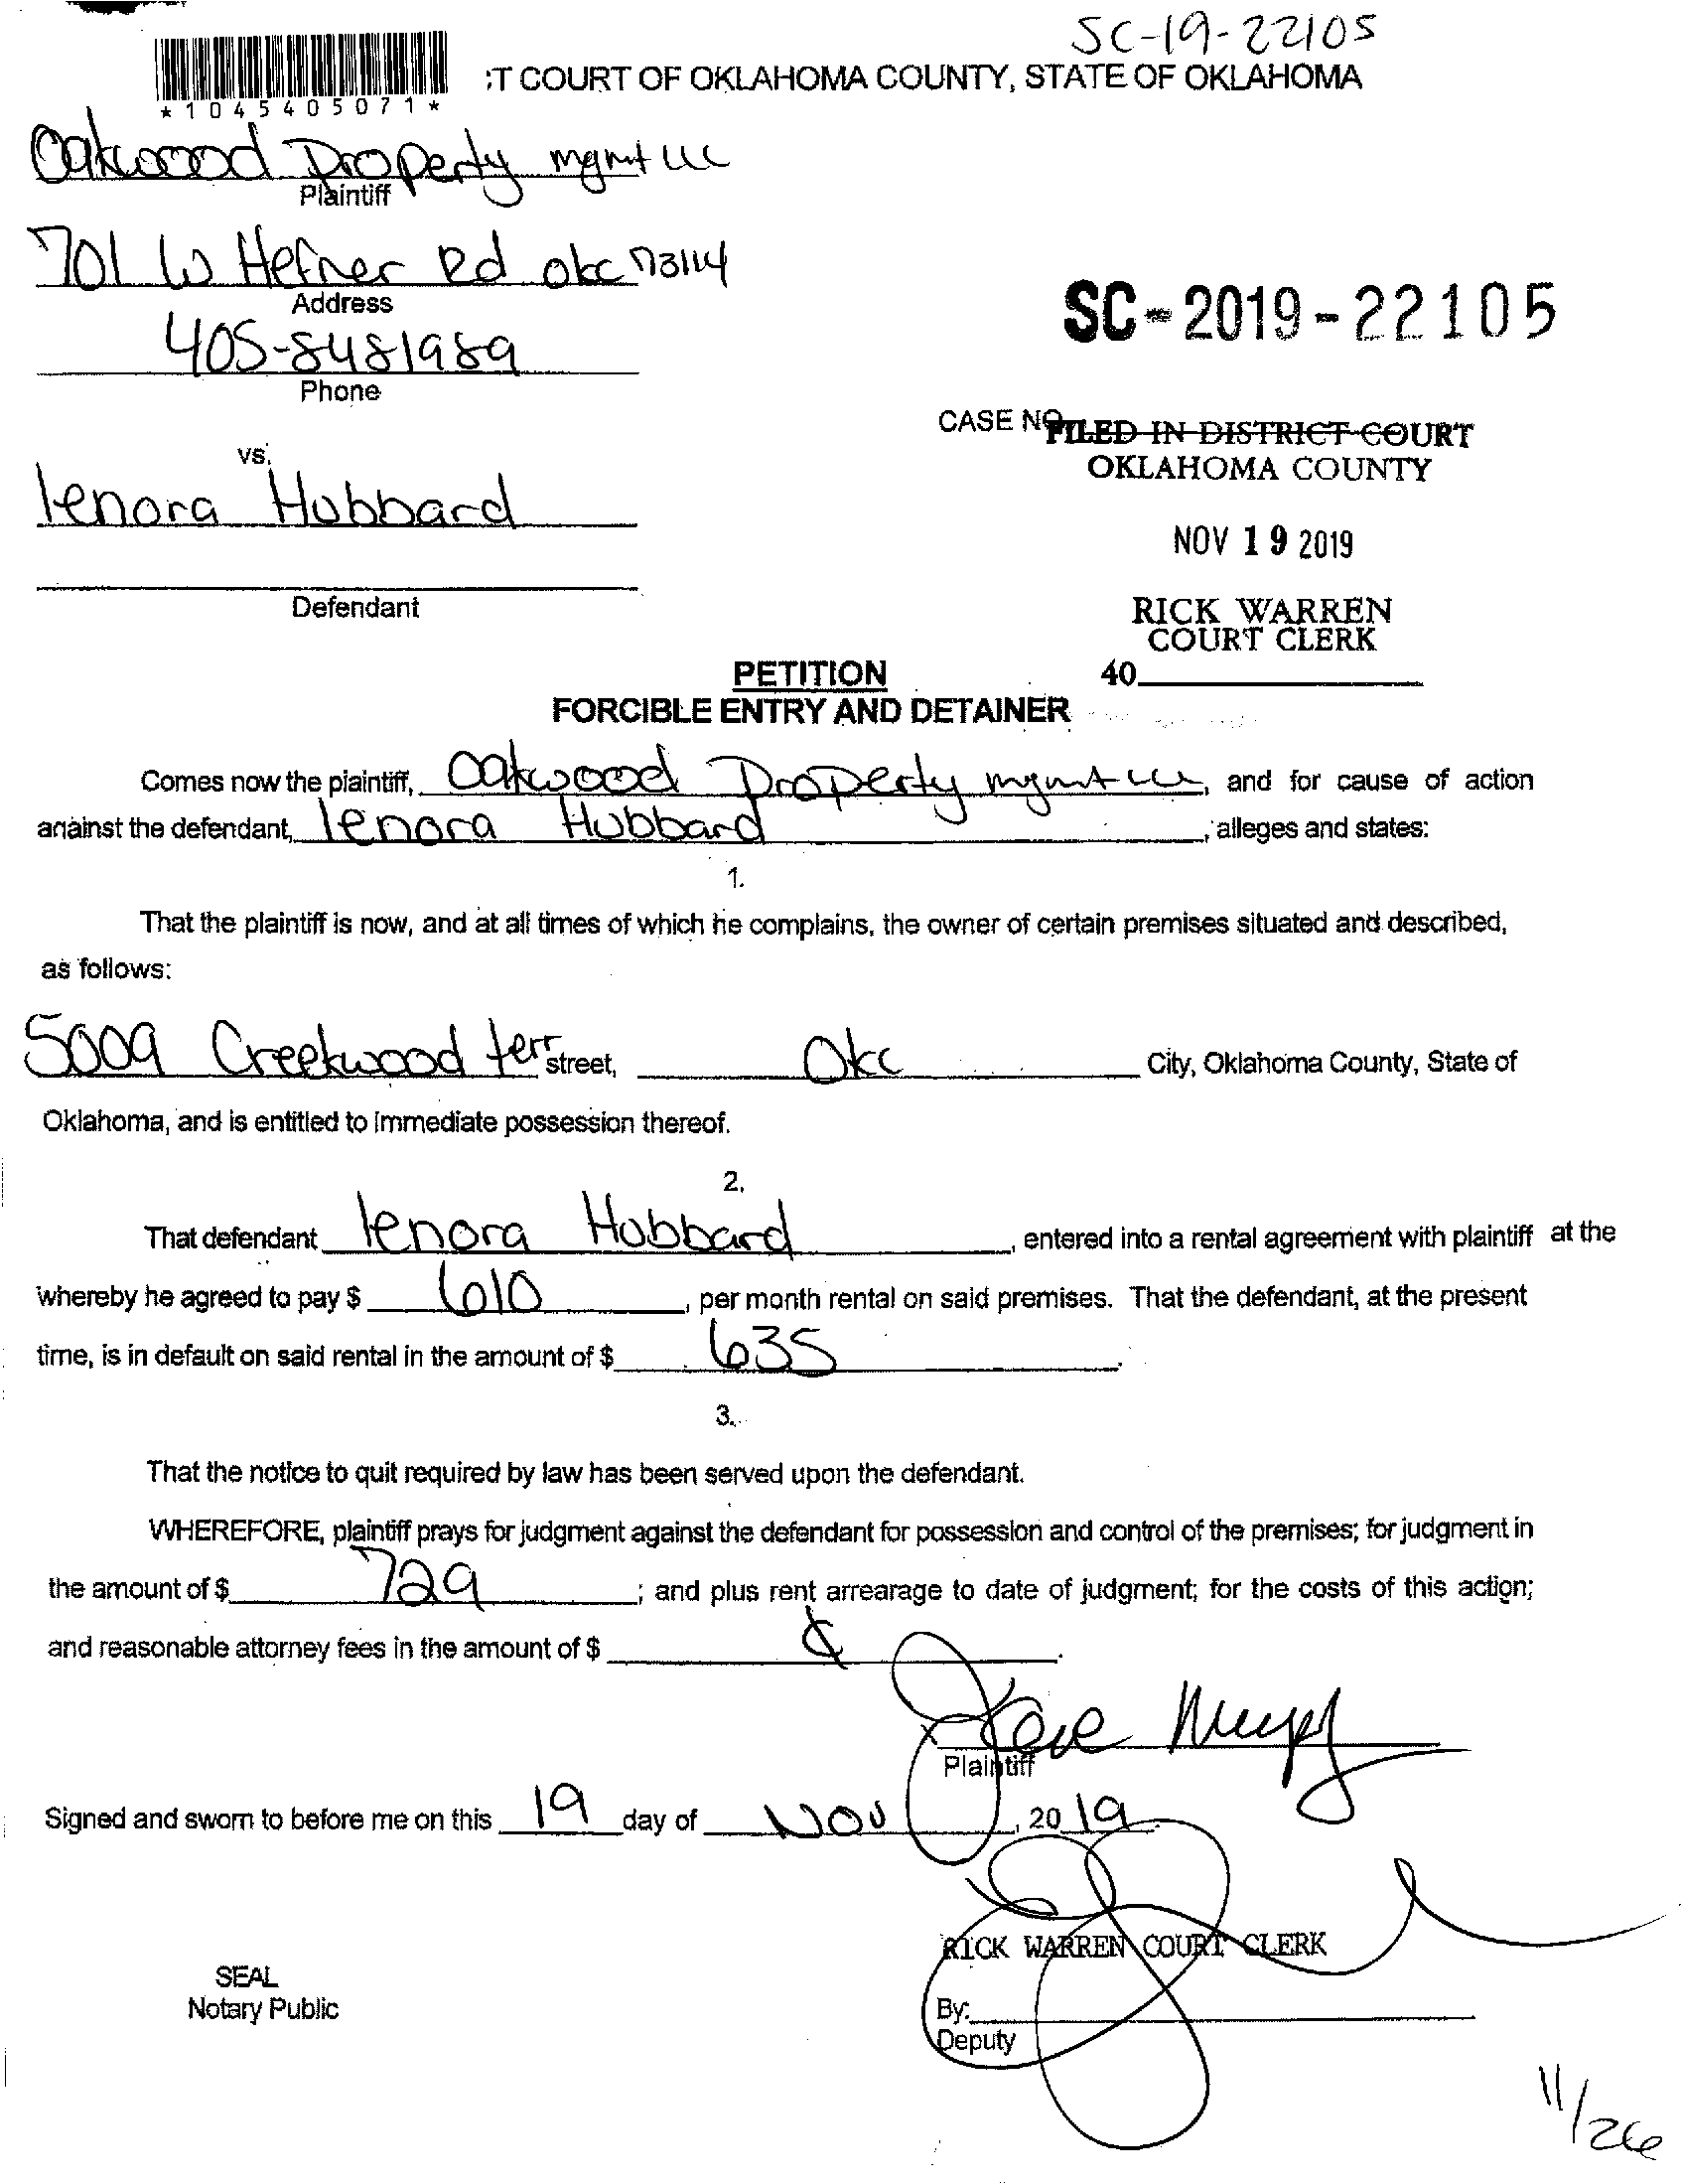 SC-19-22105
:T COURT OF OKLAHOMA COUNTY, STATE OF OKLAHOMA
*1045405071*
Oakwood Property mgmt LLC
Plaintiff
701 W Hefner Rd okc 73114
Address
SC-2019-22105
405-8481989
Phone
CASE NO
FILED IN DISTRICT COURT
OKLAHOMA COUNTY
vs.
lenora Hubbard
NOV 19 2019
Defendant
RICK WARREN
COURT CLERK
40
PETITION
FORCIBLE ENTRY AND DETAINER
Comes now the plaintiff, Oakwood Property mgmt LLC, and for cause of action
against the defendant, lenora Hubbard, alleges and states:
1.
That the plaintiff is now, and at all times of which he complains, the owner of certain premises situated and described,
as follows:
5009 Creekwood terr street, Okc City, Oklahoma County, State of
Oklahoma, and is entitled to immediate possession thereof.
2.
That defendant lenora Hubbard, entered into a rental agreement with plaintiff at the
whereby he agreed to pay $ 610, per month rental on said premises. That the defendant, at the present
time, is in default on said rental in the amount of $ 635.
3.
That the notice to quit required by law has been served upon the defendant.
WHEREFORE, plaintiff prays for judgment against the defendant for possession and control of the premises; for judgment in
the amount of $ 729; and plus rent arrearage to date of judgment; for the costs of this action;
and reasonable attorney fees in the amount of $
Plaintiff
Signed and sworn to before me on this 19 day of Nov, 2019
RICK WARREN COURT CLERK
SEAL
Notary Public
By:
Deputy
11/26